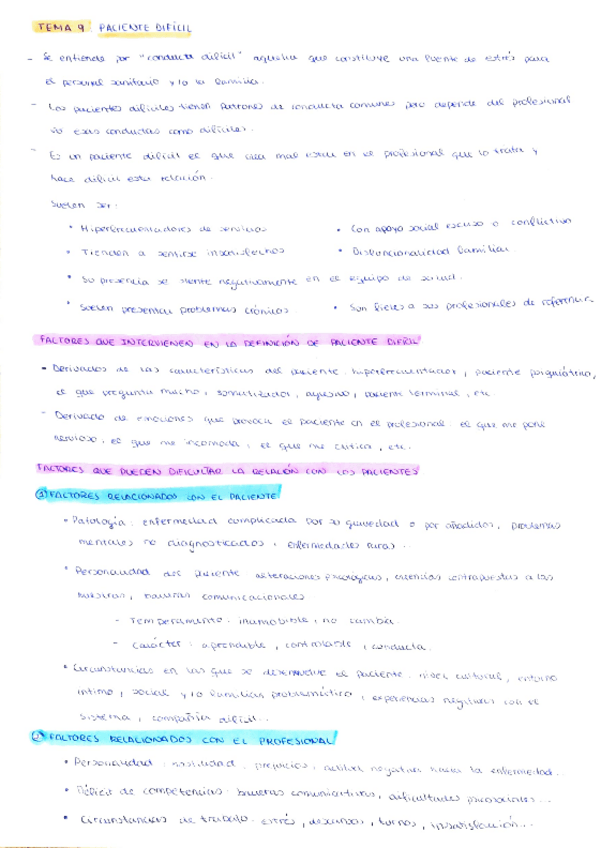 TEMA 9 PACIENTE DIFÍCIL
- Se entiende por "conducta difícil" aquella que constituye una fuente de estrés para
el personal sanitario y/o la familia.
- Los pacientes difíciles tienen patrones de conducta comunes pero depende del profesional
ver esas conductas como difíciles.
- Es un paciente difícil el que crea mal estar en el profesional que lo trata y
hace difícil esta relación.
Suelen ser:
• Hiperfrecuentadores de servicios
• Con apoyo social escaso o conflictivo
• Tienden a sentirse insatisfechos
• Disfuncionalidad familiar
• Su presencia se siente negativamente en el equipo de salud.
• Suelen presentar problemas crónicos
• Son fieles a sus profesionales de referencia
FACTORES QUE INTERVIENEN EN LA DEFINICIÓN DE PACIENTE DIFÍCIL
- Derivados de las características del paciente: hiperfrecuentador, paciente psiquiátrico,
el que pregunta mucho, somatizador, agresivo, paciente terminal, etc
- Derivado de emociones que provoca el paciente en el profesional: el que me pone
nervioso, el que me incomoda, el que me critica, etc.
FACTORES QUE PUEDEN DIFICULTAR LA RELACIÓN CON LOS PACIENTES
① FACTORES RELACIONADOS CON EL PACIENTE
• Patología: enfermedad complicada por su gravedad o por añadidos, problemas
mentales no diagnosticados, enfermedades raras...
• Personalidad del paciente: alteraciones psicológicas, creencias contrapuestas a las
nuestras, barreras comunicacionales
- Temperamento: inamobible, no cambia.
- Carácter: aprendible, controlable, conducta.
• Circunstancias en las que se desenvuelve el paciente: nivel cultural, entorno
íntimo, social y/o familiar problemático, experiencias negativas con el
sistema, compañía difícil...
② FACTORES RELACIONADOS CON EL PROFESIONAL
• Personalidad: hostilidad, prejuicios, actitud negativa hacia la enfermedad.
• Déficit de competencias: barreras comunicativas, dificultades psicosociales...
• Circunstancias de trabajo: estrés, descanso, turnos, insatisfacción...